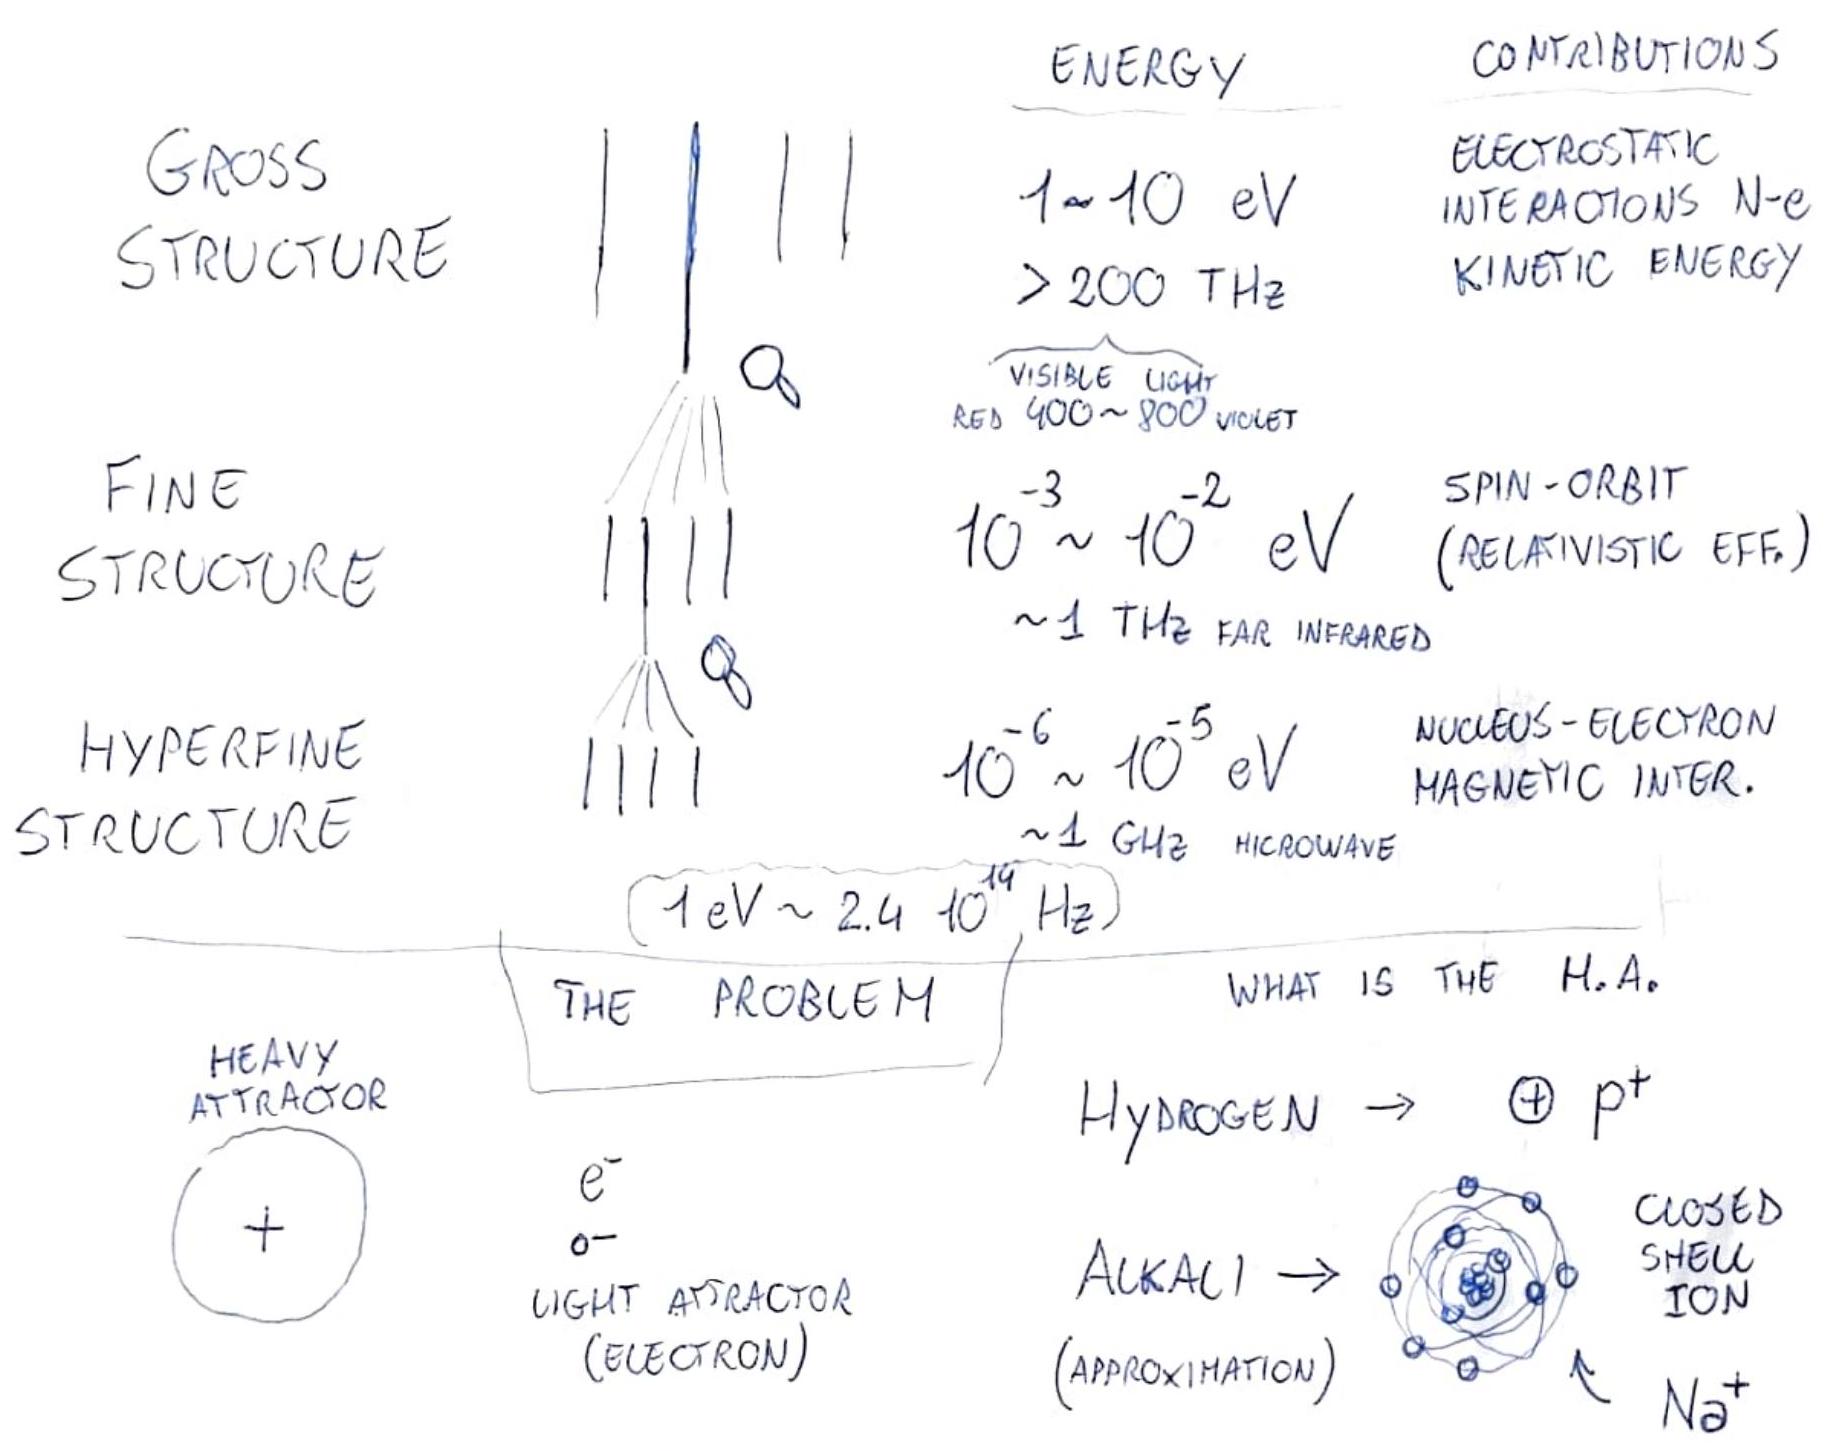 ENERGY CONTRIBUTIONS
GROSS
STRUCTURE
1~10 eV
> 200 THz
VISIBLE LIGHT
RED 400~800 VIOLET
ELECTROSTATIC
INTERACTIONS N-e
KINETIC ENERGY
FINE
STRUCTURE
10⁻³ ~ 10⁻² eV
~1 THz FAR INFRARED
SPIN-ORBIT
(RELATIVISTIC EFF.)
HYPERFINE
STRUCTURE
10⁻⁶ ~ 10⁻⁵ eV
~1 GHz MICROWAVE
NUCLEUS-ELECTRON
MAGNETIC INTER.
1 eV ~ 2.4 10¹⁴ Hz
THE PROBLEM
HEAVY
ATTRACTOR
+
e⁻
LIGHT ATTRACTOR
(ELECTRON)
WHAT IS THE H.A.
HYDROGEN → ⊕ p⁺
ALKALI →
(APPROXIMATION)
CLOSED
SHELL
ION
Na⁺